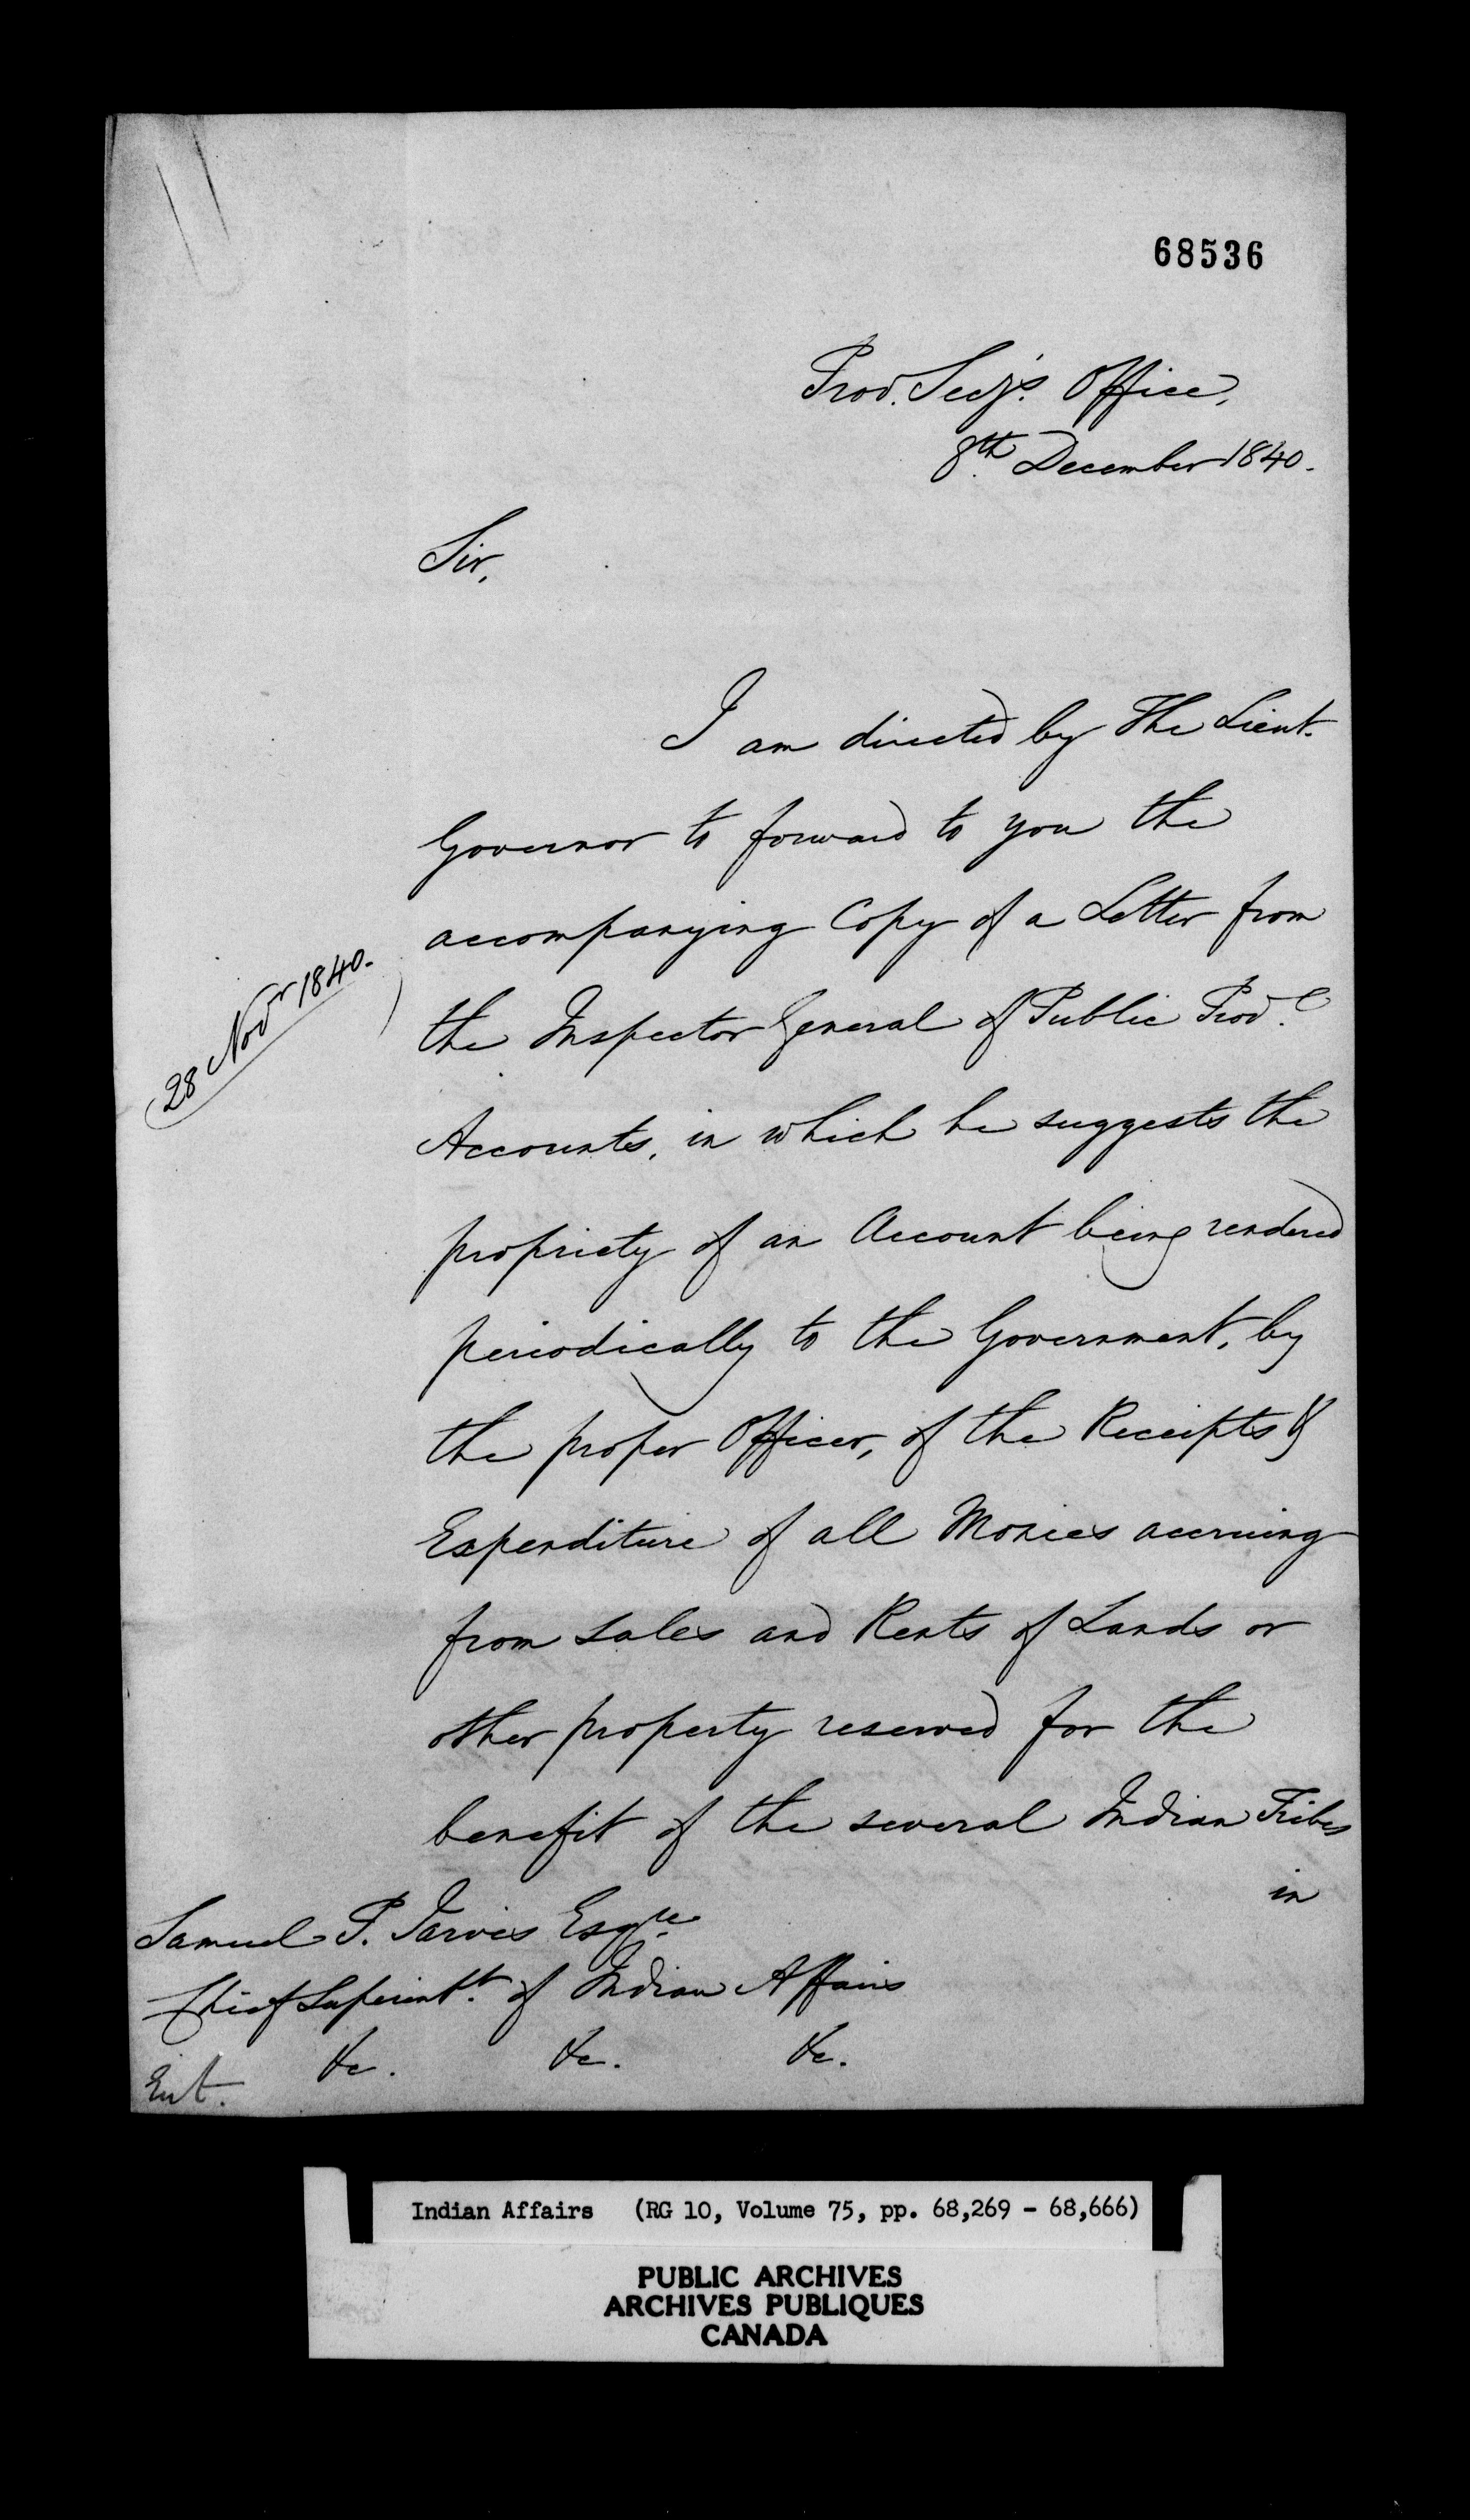 68536
Prov. Secy's. Office,
8th December 1840.
Sir,
I am directed by The Lieut.
Governor to forward to you the
accompanying Copy of a Letter from
28 Novr 1840.
the Inspector General of Public Provl
Accounts, in which he suggests the
propriety of an Account being rendered
periodically to the Government, by
the proper Officer, of the Receipts &
Expenditure of all Monies accruing
from sales and Rents of Lands or
other property reserved for the
benefit of the several Indian Tribes
in
Samuel P. Jarvis Esqre
Chief Superintt. of Indian Affairs
&c. &c. &c.
Indian Affairs (RG 10, Volume 75, pp. 68,269 - 68,666)
PUBLIC ARCHIVES
ARCHIVES PUBLIQUES
CANADA